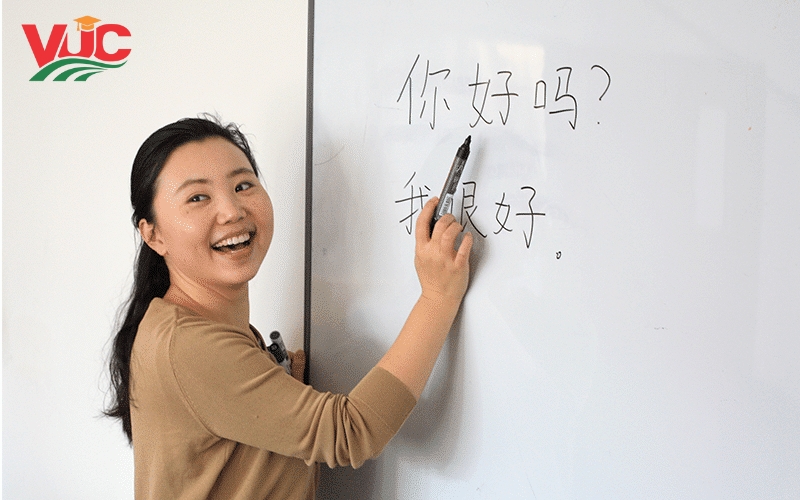 VUC
你好吗?
我很好。